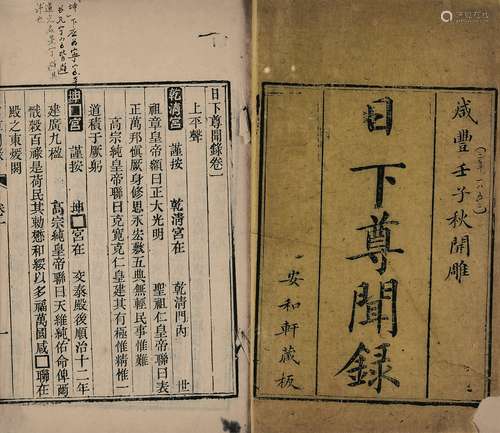 咸豐壬子秋開雕
日下尊聞錄
安和軒藏板
日下尊聞錄卷一
上平聲
乾清宮 謹按 乾清宮在 乾清門內 世
祖章皇帝額曰正大光明 聖祖仁皇帝聯曰表
正萬邦慎厥身修思永宏敷五典無輕民事惟難
高宗純皇帝聯曰克寬克仁皇建其有極惟精惟一
道積于厥躬
坤□宮 謹按 坤□宮在 交泰殿後順治十二年
建廣九楹 高宗純皇帝聯曰天維純佑命俾爾
戩穀百祿是荷民其勅懋和綏以多福萬國咸□聯在
殿之東煖閣